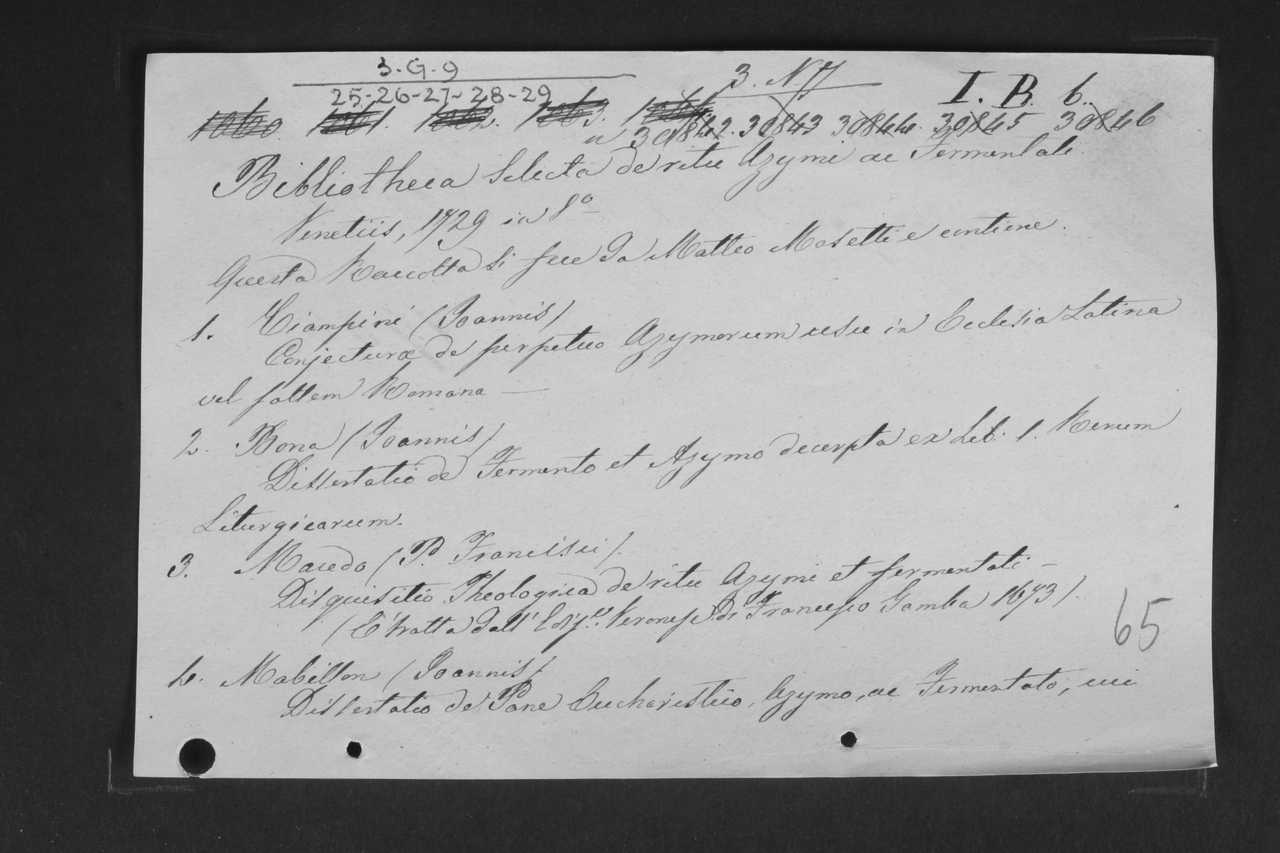 3. G. 9
3. N 7
25-26-27-28-29
I. B. 6.
1060. 1061. 1062. 1063. 1064
a 30842. 30843 30844. 30845 30846
Bibliotheca Selecta de ritu Azymi ac Fermentati
Venetiis, 1729 in 8º
Questa Raccolta si fece da Matteo Mosetti e contiene.
1. Ciampini (Joannis)
Conjecturæ de perpetuo Azymorum usu in Ecclesia Latina
vel saltem Romana —
2. Bona (Joannis)
Dissertatio de Fermento et Azymo decerpta ex Lib. 1. Rerum
Liturgicarum.
3. Macedo (P. Francisci).
Disquisitio Theologica de ritu Azymi et fermentati —
(È tratta dall' Ediz.e Veronese di Francesco Gamba 1673).
65
4. Mabillon (Joannis)
Dissertatio de Pane Eucharistico, Azymo, ac Fermentato, cui